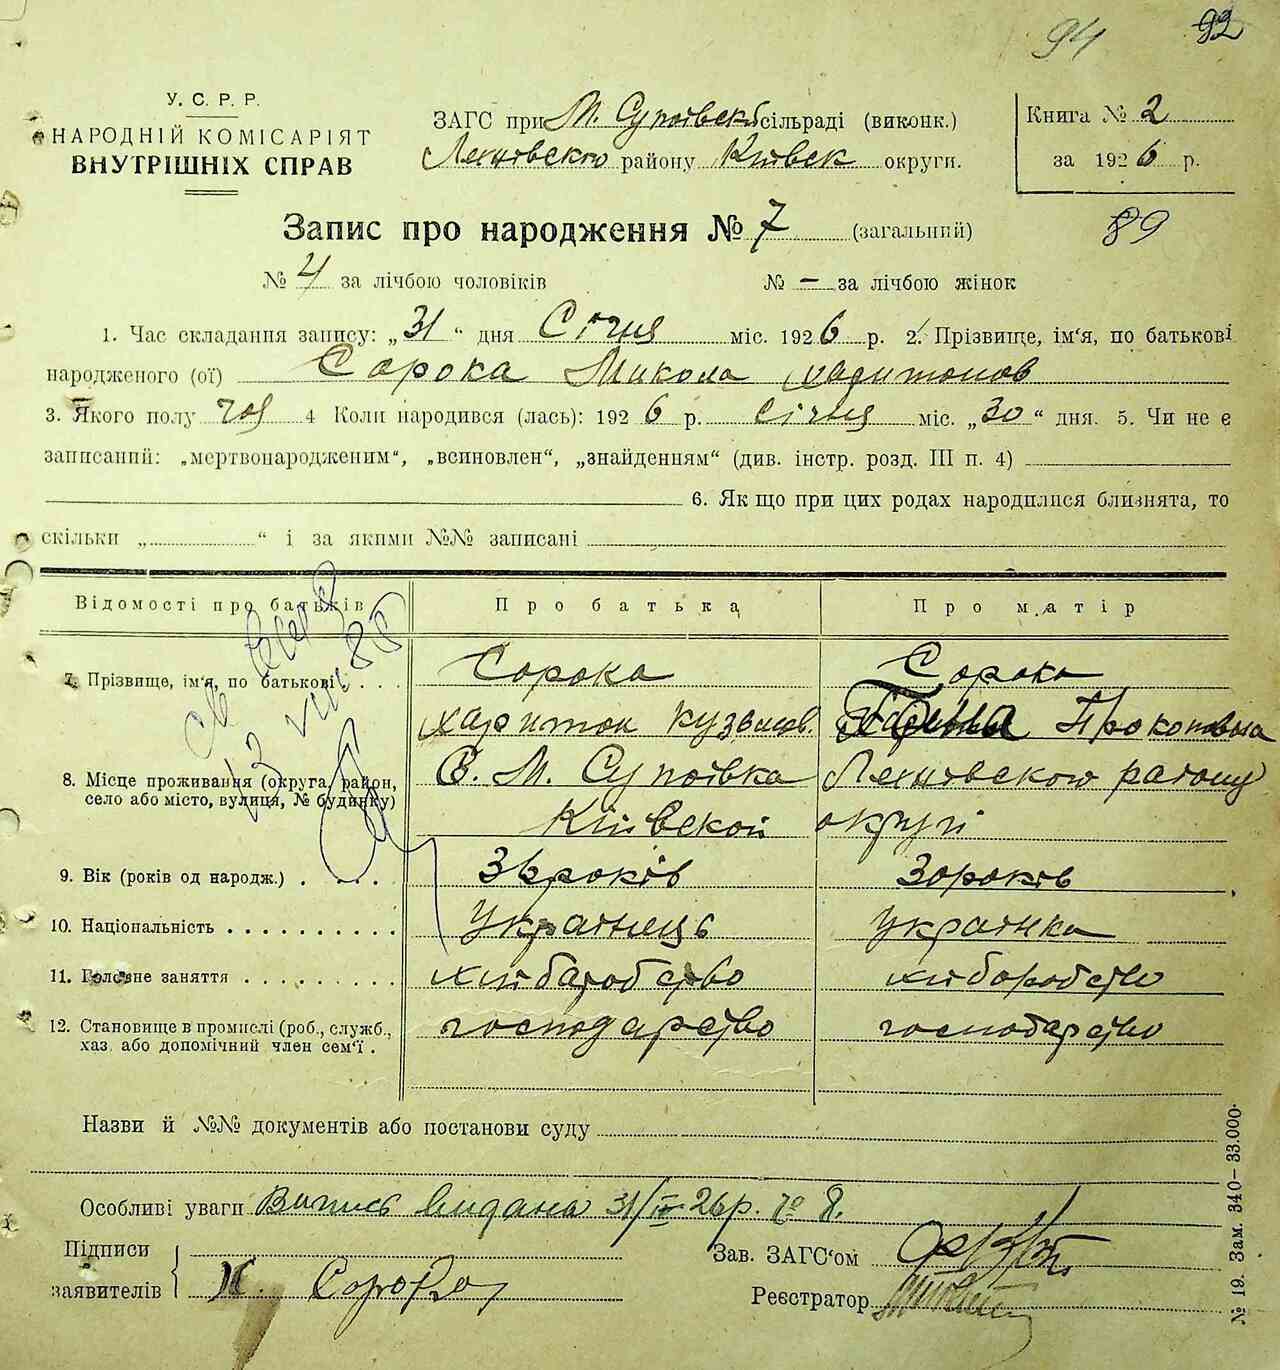 94 92
У. С. Р. Р.
НАРОДНІЙ КОМІСАРІЯТ
ВНУТРІШНІХ СПРАВ
ЗАГС при М. Супоївскій сільраді (виконк.)
району Київск округи.
Книга № 2
за 1926 р.
Запис про народження № 7 (загальний)
89
№ 4 за лічбою чоловіків № — за лічбою жінок
1. Час складання запису: „31“ дня Січня міс. 1926 р. 2. Прізвище, ім‘я, по батькові
народженого (ої) Сорока Микола Харитонов
3. Якого полу чол 4 Коли народився (лась): 1926 р. січня міс. „30“ дня. 5. Чи не є
записаний: „мертвонародженим“, „всиновлен“, „знайденням“ (див. інстр. розд. III п. 4)
6. Як що при цих родах народилися близнята, то
скільки „ “ і за якими №№ записані
Відомості про батьків Про батька Про матір
7. Прізвище, ім‘я, по батькові . . . Сорока Сорока
Харитон Кузьмов. Прокоповна
8. Місце проживання (округа, район, С. М. Супоївка району
село або місто, вулиця, № будинку) Київской округі
9. Вік (років од народж.) . . . . . років 30 років
10. Національність . . . . . . . . . . Українець Українка
11. Головне заняття . . . . . . . . . хліборобство
12. Становище в промислі (роб., служб., господарство господарство
хаз. або допомічний член сем‘ї .
Назви й №№ документів або постанови суду
Особливі уваги Випись видана 31/ 26 р. № 8.
Підписи
заявителів Х. Сорока
Зав. ЗАГС‘ом
Реєстратор
№ 19. Зам. 340—33.000.